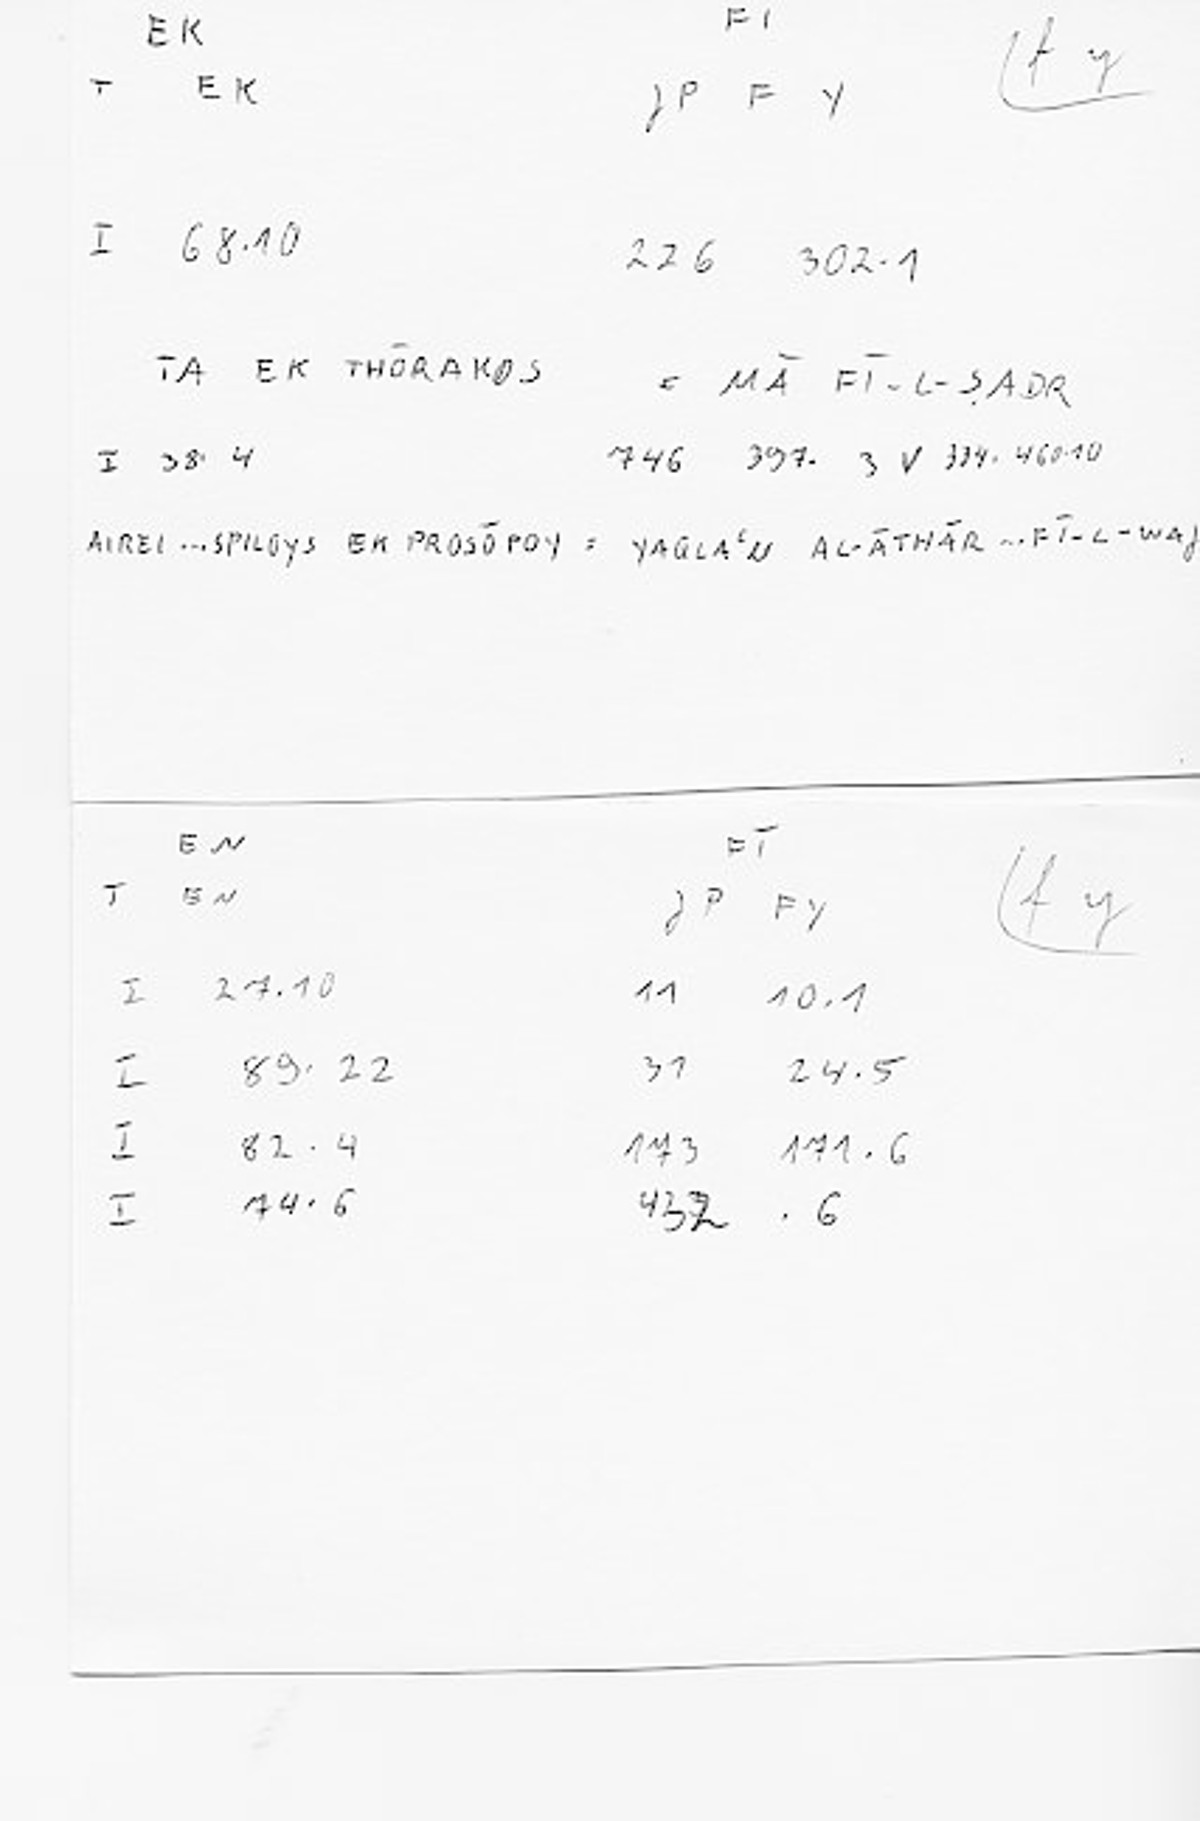 EK FI
T EK JP F Y f y
I 68.10 226 302.1
TA EK THŌRAKOS = MĀ FĪ-L-ṢADR
I 38. 4 746 397. 3 V 334. 460.10
AIREI ... SPILOYS EK PROSŌPOY = YAQLA'U AL-ĀTHĀR ... FĪ-L-WAJ
EN FĪ
T EN JP FY f y
I 27.10 11 10.1
I 89. 22 31 24.5
I 82. 4 173 171.6
I 74.6 . 6